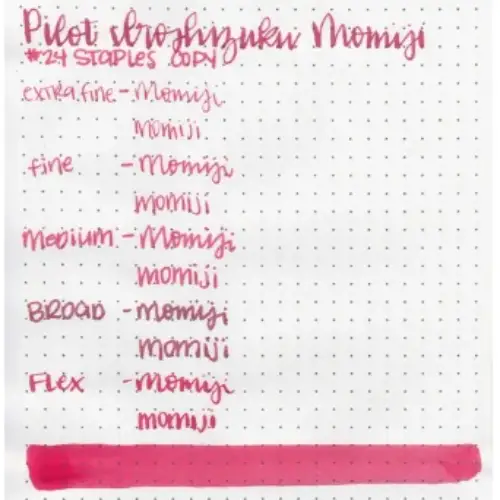 Pilot Iroshizuku Momiji
#24 STAPLES COPY
extra fine - Momiji
momiji
fine - Momiji
momiji
Medium - Momiji
momiji
BROAD - Momiji
momiji
FLEX - Momiji
momiji